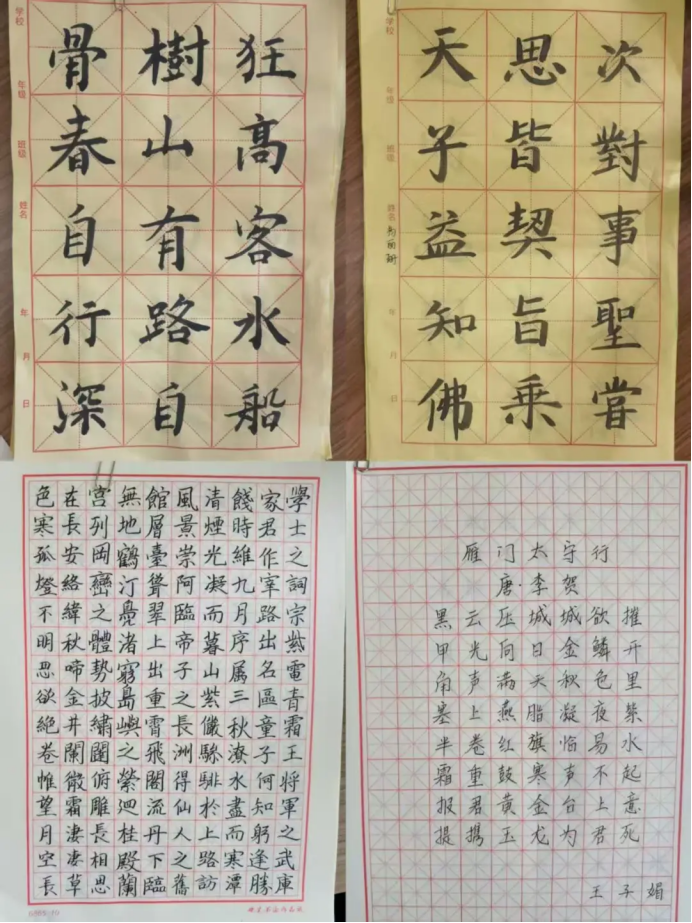 学校
年级
班级
姓名
年
月
日
狂高客水船
樹山有路自
骨春自行深
学校
年级
班级
姓名
年
月
日
次對事聖嘗
思皆契旨乘
天子益知佛
學士之詞宗紫電青霜王將軍之武庫
家君作宰路出名區童子何知躬逢勝
餞時維九月序属三秋潦水盡而寒潭
清煙光凝而暮山紫儼驂騑於上路訪
風景崇阿臨帝子之長洲得仙人之舊
館層臺聳翠上出重霄飛閣流丹下臨
無地鶴汀鳧渚窮島嶼之縈迴桂殿蘭
宮列岡巒之體勢披繡闥俯雕長相思
在長安絡緯秋啼金井闌微霜淒淒草
色寒孤燈不明思欲絕卷帷望月空長
雁门太守行
唐·李贺
黑云压城城欲摧
甲光向日金鳞开
角声满天秋色里
塞上燕脂凝夜紫
半卷红旗临易水
霜重鼓寒声不起
报君黄金台上意
提携玉龙为君死
王子媚